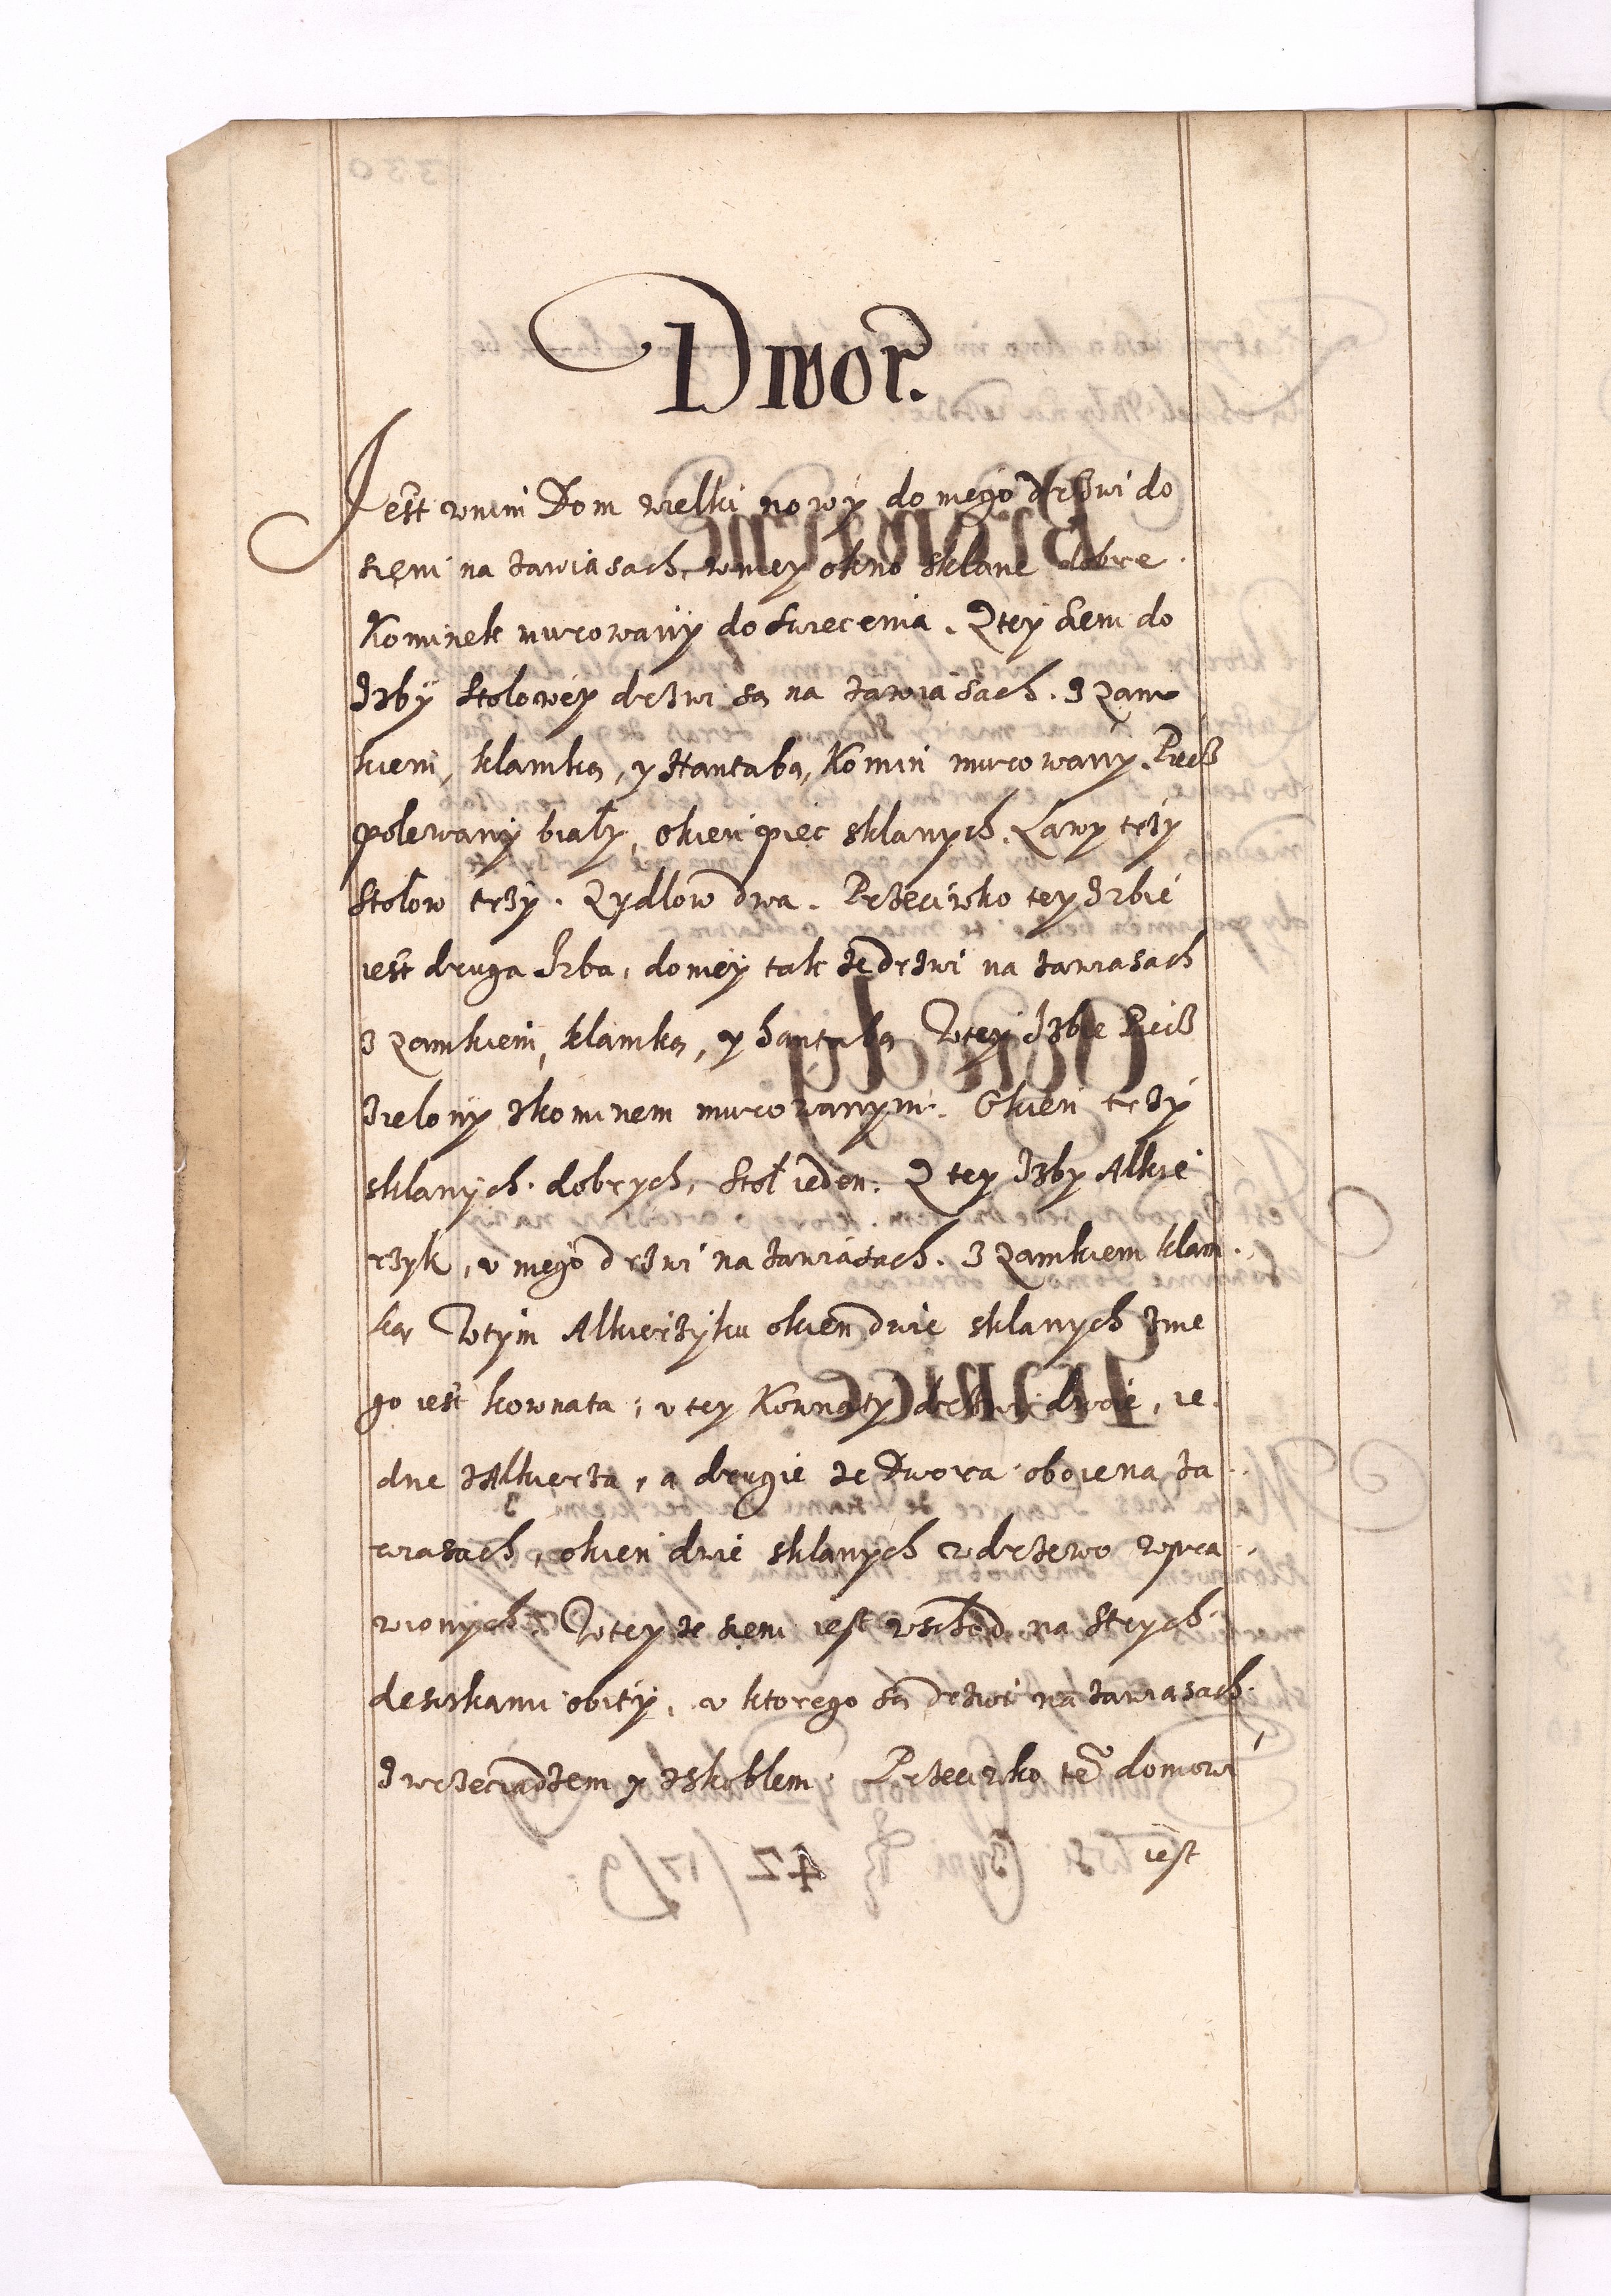 Dwor.
Jest wnim Dom wielki nowy do niego drzwi do
sieni na zawiasach, wniey okno sklane dobre.
Kominek murowany do swiecenia. Z tey sieni do
Izby stolowey drzwi są na zawiasach. z Zam
kiem, klamką, y Hantabą, Komin murowany. Piecz
polewany biały, okien piec sklanych. Ławy trzy
Stolow trzy. Zydlow dwa. Przeciwko tey Izbie
iest druga Izba, do niey tak ze drzwi na zawiasach
z Zamkiem, klamką, y hantabą Wtey Izbie Piecz
zielony zkominem murowanym. Okien trzy
sklanych dobrych, Stoł ieden. Z tey Izby Alkie
rzyk, v niego drzwi na zawiasach. z Zamkiem klam
ką Wtym Alkierzyku okien dwie sklanych znie
go iest kownata, v tey Kownaty drzwi dwoie, ie
dne zAlkierza, a drugie ze Dwora oboie na za
wiasach, okien dwie sklanych wdrzewo wpra
wionych. Wtey ze sieni iest wschod na Strych
deskami obity, v ktorego są drzwi na zawiasach
z wrzeciądzem y zskoblem. Przeciwko te domowi
iest